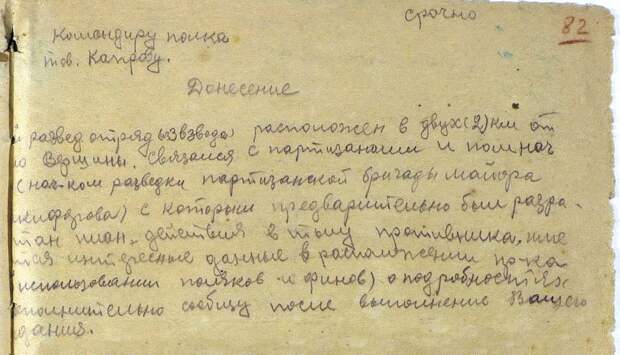 срочно
82
Командиру полка
тов. Капрову.
Донесение
развед отряд взвода расположен в двух (2) км от
Вершины. Связался с партизанами и пом нач
(нач-ком разведки партизанской бригады майора
) с которым предварительно был разра-
тан план, действия в тылу противника, име
тся интересные данные в расположении пр-ка
использовании поляков и финов) о подробностях
полнительно сообщу после выполнение Вашего
дания.